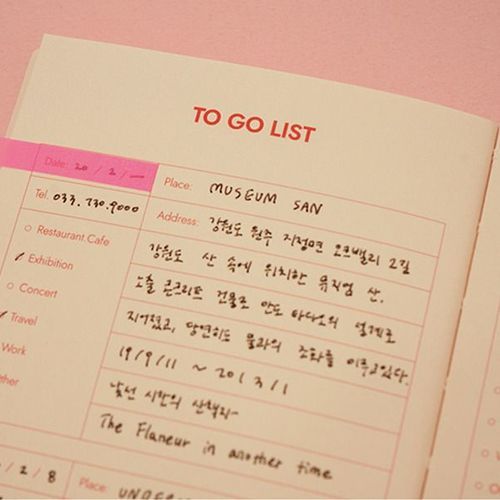 TO GO LIST
Date: 20 / 2 / —
Place: MUSEUM SAN
Tel. 033.730.9000
Address: 강원도 원주 지정면 오크밸리 2길
Restaurant.Cafe
강원도 산 속에 위치한 뮤지엄 산.
Exhibition
노출 콘크리트 건물로 안도 타다오의 설계로
Concert
지어졌고, 당연히도 물과의 조화를 이루고있다.
Travel
19/9/11 ~ 20/3/1
Work
낯선 시간의 산책자
ther
The Flaneur in another time
/ 2 / 8
Place: UNDER